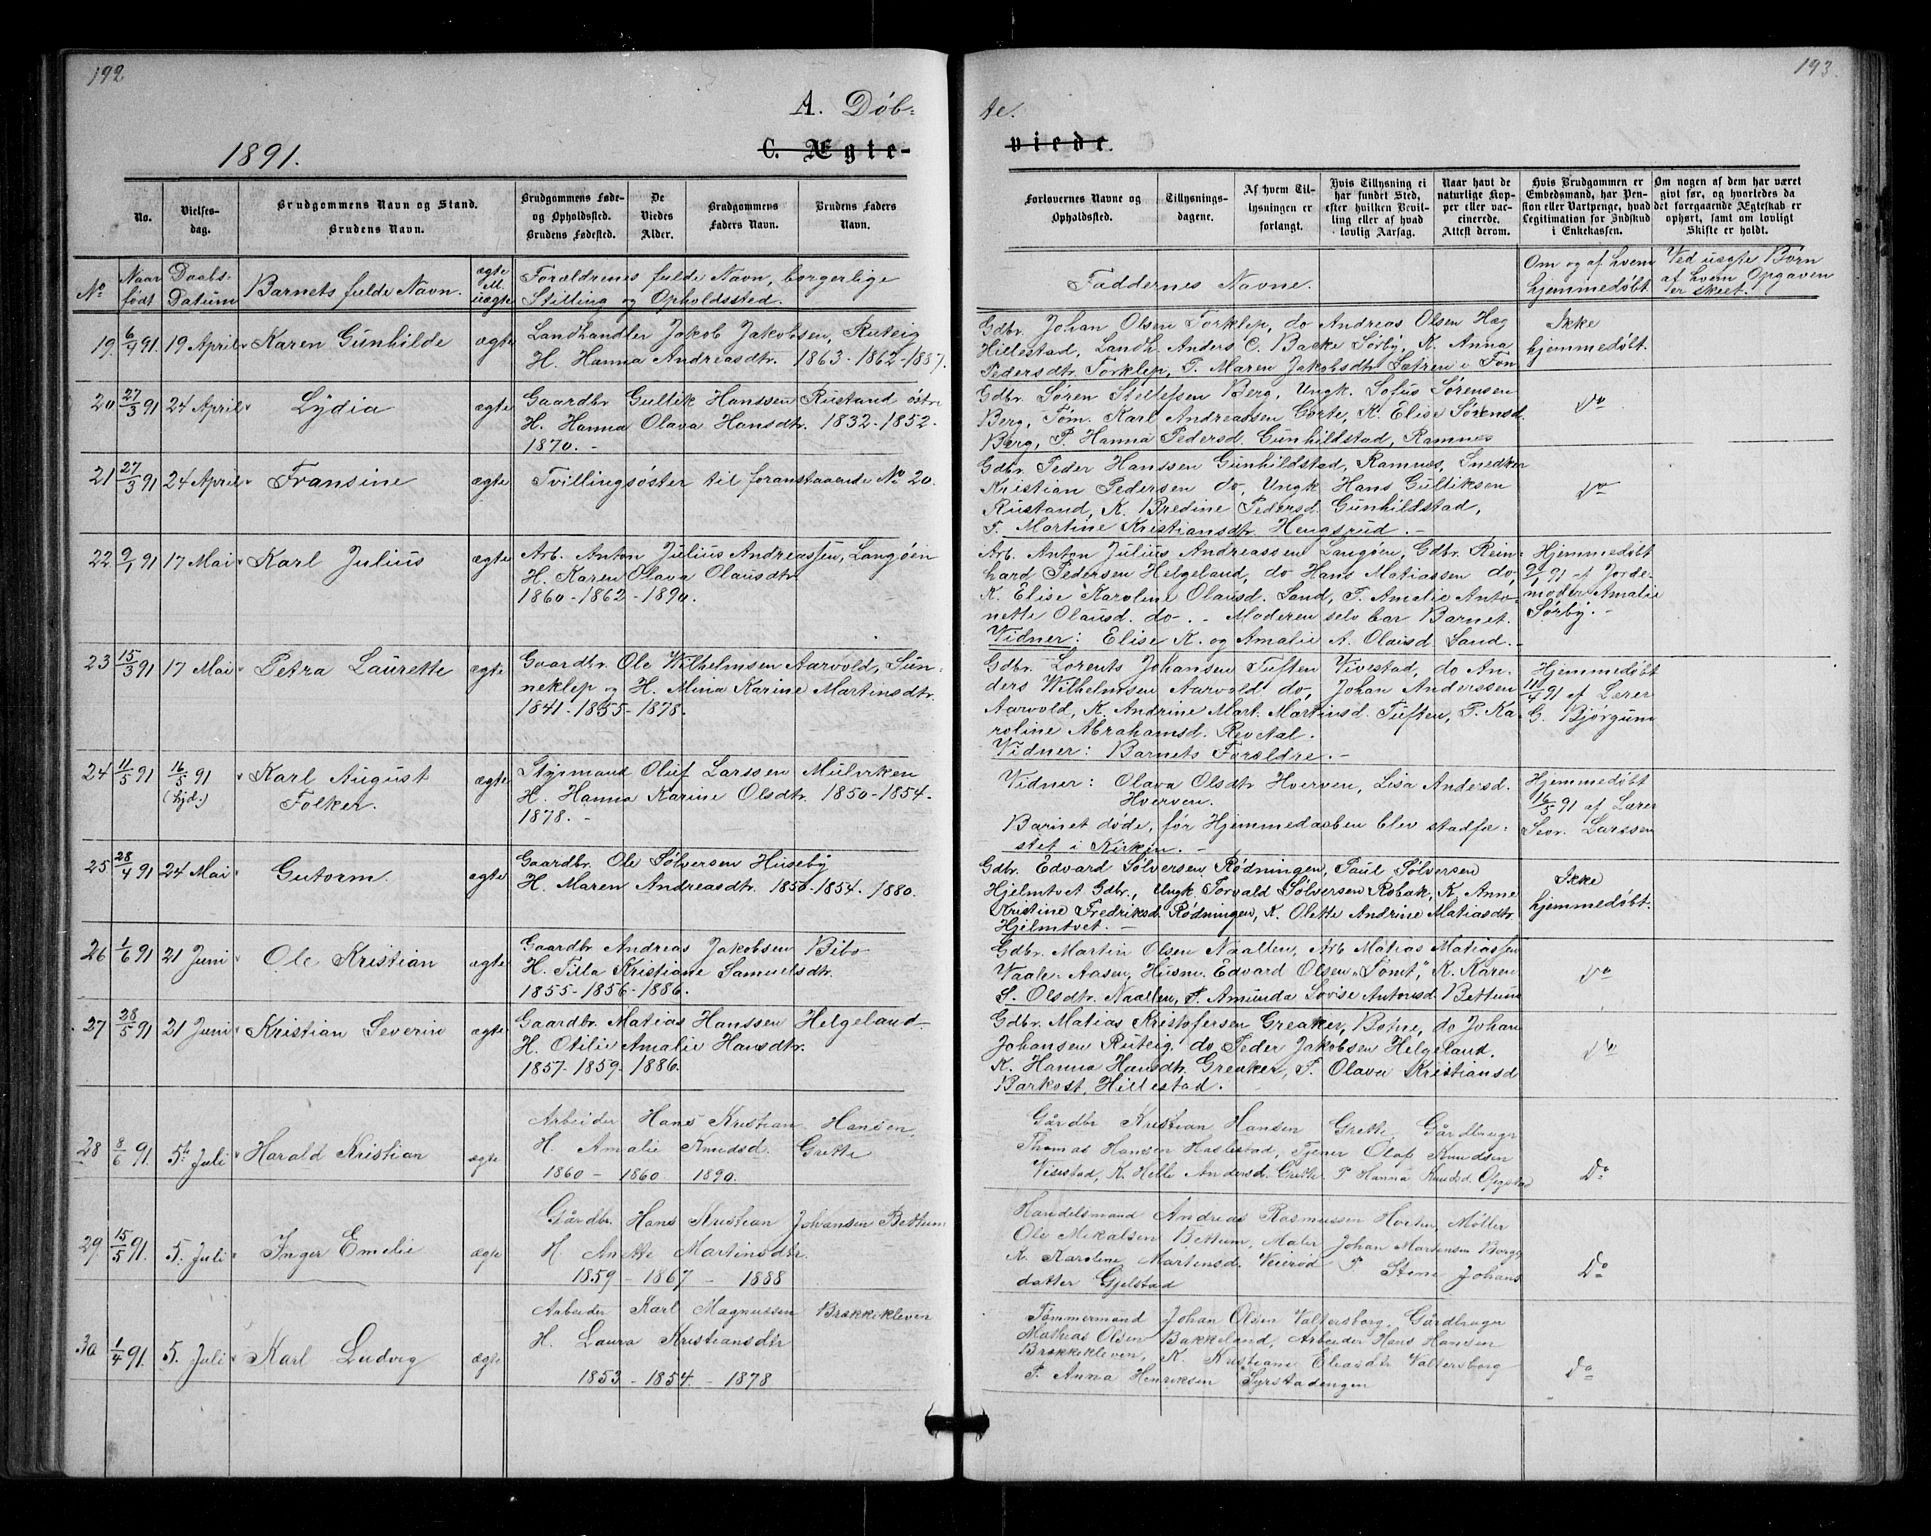 192
193.
A. Døb-
te.
1891.
C. Ægte-
viede.
No.
Vielses-
dag.
Brudgommens Navn og Stand.
Brudens Navn.
Brudgommens Føde-
og Opholdssted.
Brudens Fødested.
De
Viedes
Alder.
Brudgommens
Faders Navn.
Brudens Faders
Navn.
Forlovernes Navne og
Opholdssted.
Tillysnings-
dagene.
Af hvem Til-
lysningen er
forlangt.
Hvis Tillysning ei
har fundet Sted,
efter hvilken Bevil-
ling eller af hvad
lovlig Aarsag.
Naar havt de
naturlige Kop-
per eller vac-
cinerede.
Attest derom.
Hvis Brudgommen er
Embedsmand, har Pen-
sion eller Vartpenge, hvad
Legitimation for Indskud
i Enkekassen.
Om nogen af dem har været
givt før, og hvorledes da
det foregaaende Ægteskab er
ophørt, samt om lovligt
Skifte er holdt.
No
Naar
født
Daabs-
Datum
Barnets fulde Navn.
ægte
ll.
uægte
Forældrenes fulde Navn, borgerlige
Stilling og Opholdssted.
Faddernes Navne.
Om og af hvem
hjemmedøbt
Ved uægte Børn
af hvem Opgaven
er skeet.
19 6/4 91 19 April Karen Gunhilde ægte
Landhandler Jakob Jakobsen, Ruteig
H. Hanna Andreasdtr. 1863-1862-1887.
Gdbr. Johan Olsen Torklep, do Andreas Olsen Hæg
Hillestad, Landh. Anders C. Backe Sørby, K. Anna
Pedersdtr. Torklep, P. Maren Jakobsdtr. Sætren i Fon
Ikke
hjemmedøbt.
20 27/3 91 24 April Lydia ægte
Gaardbr Gullik Hanssen Rustand østr
H. Hanna Olava Hansdtr. 1832-1852-
1870.-
Gdbr. Søren Stellefsen Berg, Ungk. Sofus Sørensen
Berg, Tøm. Karl Andreassen Gorte, K. Elise Sørensd.
Berg, P. Hanna Pedersd. Gunhildstad, Ramnes
do
21 27/3 91 24 April Fransine ægte
Tvillingsøster til foranstaaende No 20.
Gdbr. Peder Hanssen Gunhildstad, Ramnes, Snedker
Kristian Pedersen do, Ungk Hans Gulliksen
Rustand, K. Bredine Pedersd. Gunhildstad,
P. Martine Kristiansdtr. Hengsrud.-
do
22 9/1 91 17 Mai Karl Julius ægte
Arb. Anton Julius Andreassen, Langøen
H. Karen Olava Olausdtr.
1860-1862-1890.
Arb. Anton Julius Andreassen Langøen, Gdbr. Rein-
hard Pedersen Helgeland, do Hans Matiassen do,
K. Elise Karoline Olausd. Sand, P. Amalie Anto-
nette Olausd. do.- Moderen selv bar Barnet.
Vidner: Elise K. og Amalie A. Olausd. Sand.-
Hjemmedøbt
9/1 91 af Jorde-
moder Amalie
Sørby.-
23 15/3 91 17 Mai Petra Laurette ægte
Gaardbr. Ole Wilhelmsen Aarvold, Sun-
neklep og H. Mina Karine Martinsdtr.
1841-1855-1878.
Gdbr. Lorents Johansen Tuften Vivestad, do An-
ders Wilhelmsen Aarvold do, Johan Anderssen
Aarvold, K. Andrine Mart. Martinsd. Tuften, P. Ka-
roline Abrahamsd. Revetal.
Vidner: Barnets Forældre.-
Hjemmedøbt
11/4 91 af Lærer
G. Bjørgum
24 11/5 91 16/5 91 Karl August ægte
(hjd.) Folker.
Styrmand Oluf Larssen Mulvrken
H. Hanna Karine Olsdtr. 1850-1854-
1878.-
Vidner: Olava Olsdtr Hverven, Lisa Andersd.
Hverven.
Barnet døde, før Hjemmedaaben blev stadfæ-
stet i Kirken.-
Hjemmedøbt
16/5 91 af Lærer
Sevr. Larssen
25 28/4 91 24 Mai Gutorm. ægte
Gaardbr. Ole Sølversen Huseby
H. Maren Andreasdtr. 1850-1854-1880
Gdbr. Edvard Sølversen Rødningen, Paul Sølversen
Hjelmtvet Gdbr., Ungk Torvald Sølversen Robak, K. Anne
Kristine Fredriksd. Rødningen, K. Olette Andrine Matiasdtr
Hjelmtvet.-
Ikke
hjemmedøbt.
26 1/6 91 21 Juni Ole Kristian ægte
Gaardbr Andreas Jakobsen Bibo
H. Tilla Kristiane Samuelsdtr.
1855-1856-1886.
Gdbr. Martin Olsen Naallen, Arb. Matias Matiassen
Vaale-Aasen, Husm. Edvard Olsen "Tomt," K. Karen
S. Olsdtr. Naallen, P. Amunda Lovise Antonsd. Bettum
do
27 28/5 91 21 Juni Kristian Severin ægte
Gaardbr. Matias Hanssen Helgeland-
H. Otilie Amalie Hansdtr.
1857-1859-1886.
Gdbr. Matias Kristofersen Greaker, Botne, do Johan
Johansen Ruteig, do Peder Jakobsen Helgeland.
K. Hanna Hansdtr. Greaker, P. Olava Kristiansd
Barkost, Hillestad.
do
28 8/6 91. 5te Juli Harald Kristian ægte
Arbeider Hans Kristian Hansen
H. Amalie Knudsd. Grette
1860 - 1860 1890.
Gårdbr Kristian Hansen Grette, Gårdbruger
Thomas Hansen Haslestad, Tjener Olaf Knudsen
Vivestad, K. Helle Andersd. Grette P Hanna Knudsd.
Do
29 15/5 91. 5. Juli Inger Emelie ægte
Gårdbr. Hans Kristian Johansen Bettum
H Anette Martinsdtr.
1859 - 1867 - 1888
Handelsmand Andreas Rasmussen Horten, Møller
Ole Mikalsen Bettum, Maler Johan Martinsen Borge
K Karoline Martensd. Veierød P Stine Johans
datter Gjelstad
Do
30 1/4 91. 5. Juli Karl Ludvig ægte
Arbeider Karl Magnussen Brækkekleven
H. Laura Kristiansdtr
1853 - 1854 - 1878
Tømmermand Johan Olsen Valtersborg, Gårdbruger
Mathias Olsen Bakkeland, Arbeider Hans Hansen
Brækkekleven, K. Kristiane Valtersborg
P. Anna Henriksen
Do